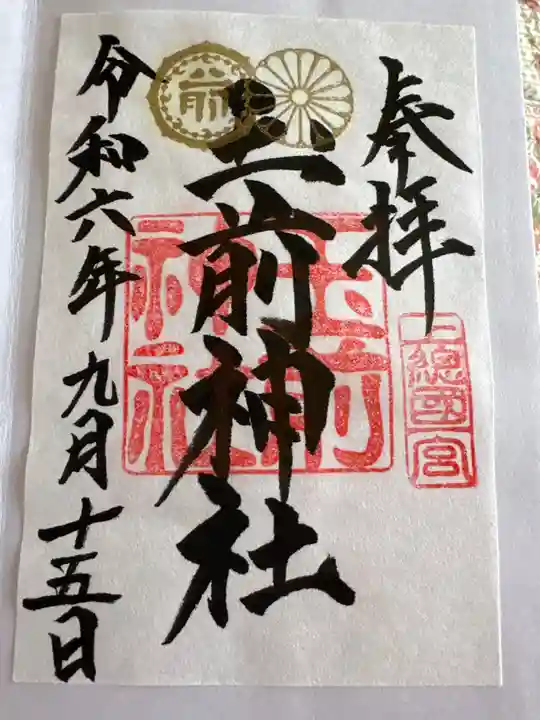 奉拝
上総國一宮
玉前神社
玉前神社
前
令和六年九月十五日